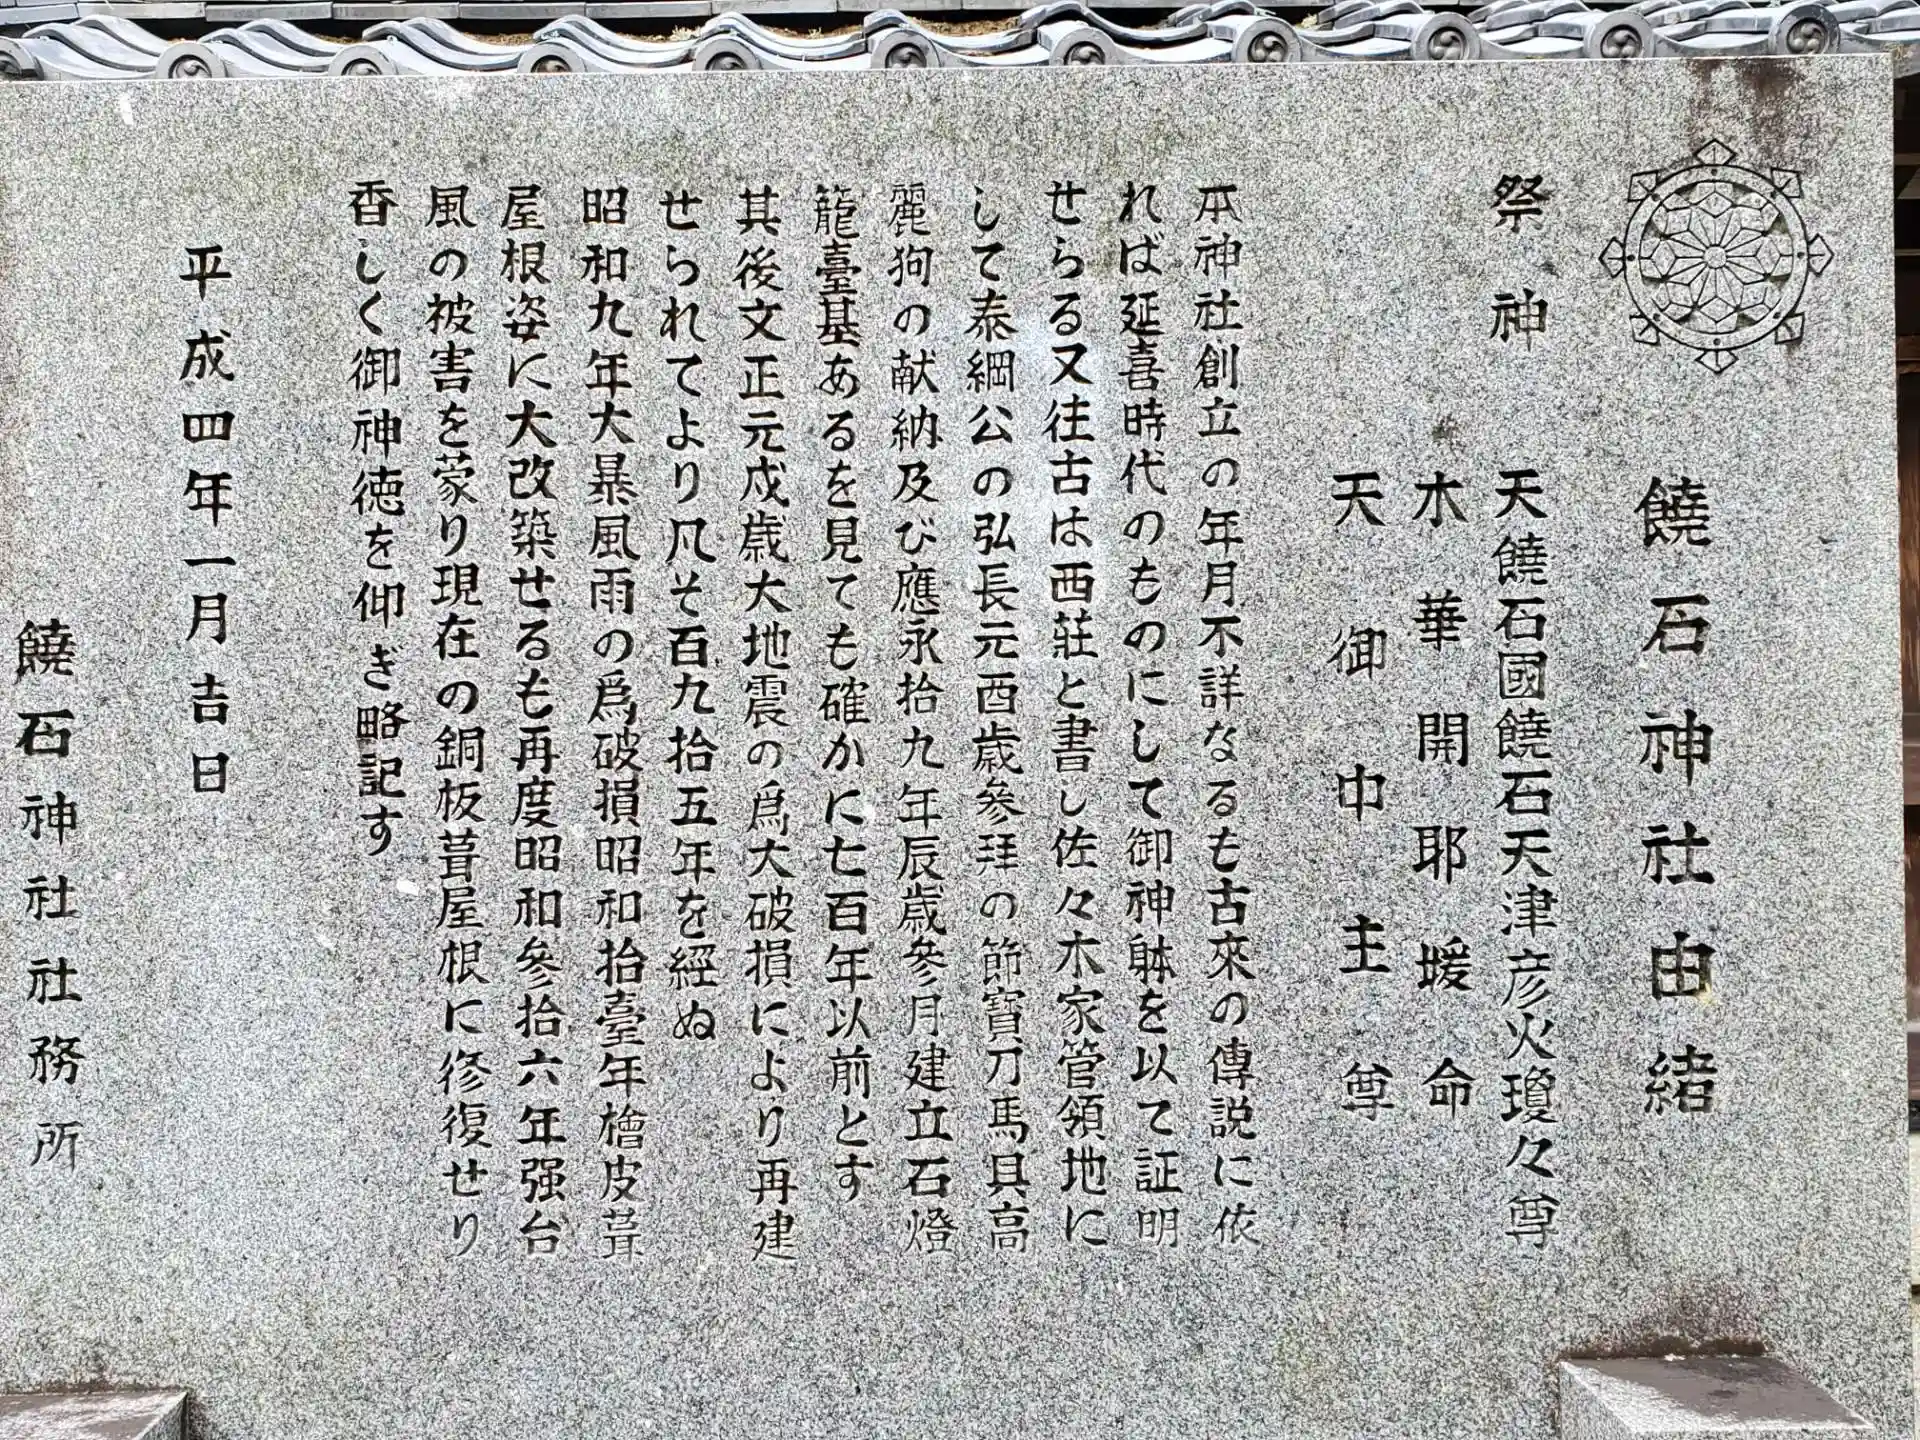 饒石神社由緒
祭神 天饒石國饒石天津彦火瓊々尊
木華開耶媛命
天御中主尊
本神社創立の年月不詳なるも古來の傳説に依
れば延喜時代のものにして御神躰を以て証明
せらる又往古は西莊と書し佐々木家管領地に
して泰綱公の弘長元酉歳參拝の節寶刀馬具高
麗狗の献納及び應永拾九年辰歳參月建立石燈
籠臺基あるを見ても確かに七百年以前とす
其後文正元戍歳大地震の爲大破損により再建
せられてより凡そ百九拾五年を經ぬ
昭和九年大暴風雨の爲破損昭和拾臺年檜皮葺
屋根姿に大改築せるも再度昭和參拾六年强台
風の被害を蒙り現在の銅板葺屋根に修復せり
香しく御神徳を仰ぎ略記す
平成四年一月吉日
饒石神社社務所